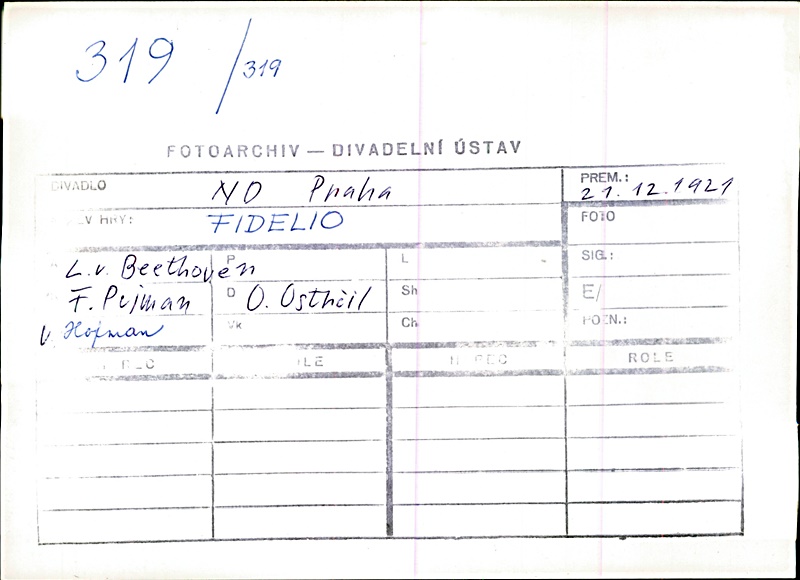 319 / 319
FOTOARCHIV — DIVADELNÍ ÚSTAV
DIVADLO ND Praha PREM.: 21.12.1921
HRY: FIDELIO FOTO
L.v. Beethoven P L SIG.:
F. Pujman D O. Ostrčil Sh E/
V. Hofman Vk Ch POZN.:
ROLE